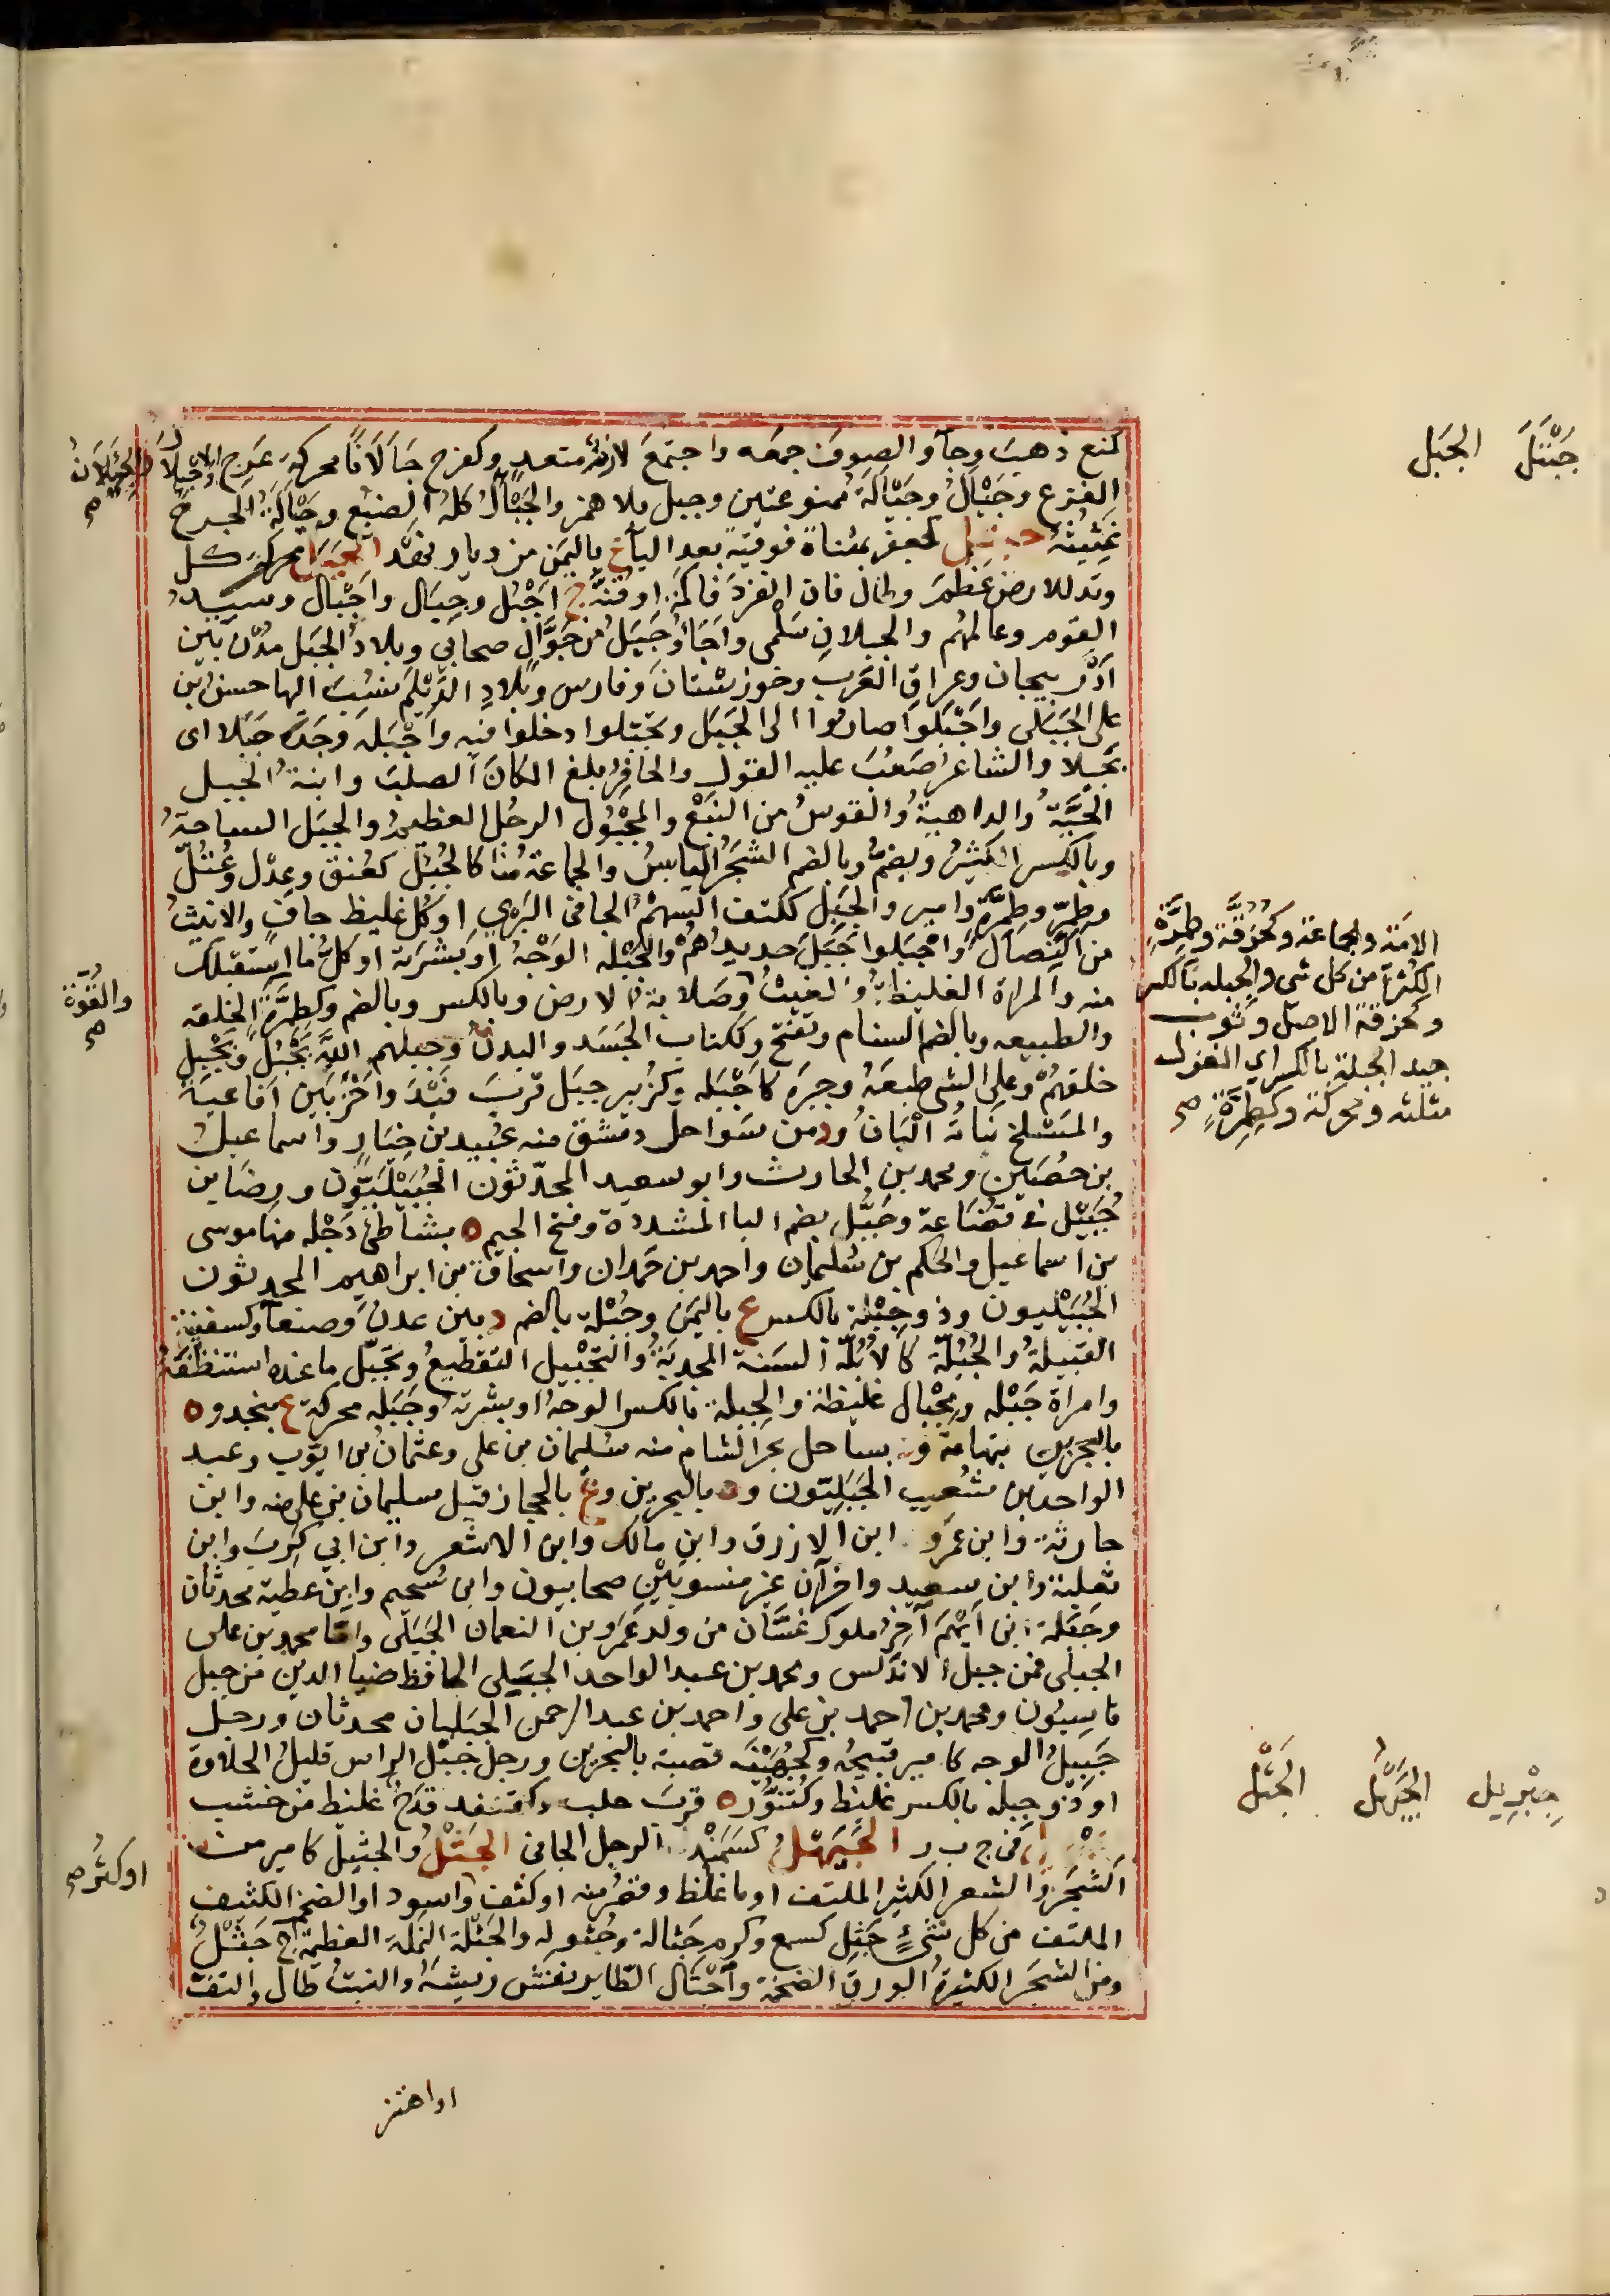 جَبْتَلَ الجَبَل
كمنع ذهبَ وجآءَ والصوفَ جمعه واجتمعَ لازمٌ متعدٍ وكفرح جَأَلاَنًا محركةً عَرِج والاجئلال
والجئلال صح
الفزع وجَيْأَلُ وجَيْأَلَةُ ممنوعتين وجيل بلا همز والجَيْأَلُ كله الضبع وجَيْأَلَةُ الجرح
غَثِيثُهُ جبتل كجعفر بمثناة فوقية بعد البآءِ ع باليمن من ديار نهد الجَبَل محركة كل
وتد للارض عَظُمَ وطال فان انفرد فاكمة او قنة ج اجْبُل وجِبَال واجْبَال وسيد
القوم وعالمهم والجبلانِ سَلْمى واجَأُ وجَبَلُ بن جَوَّالٍ صحابي وبلادُ الجَبَل مُدُن بين
آذَرْبيجان وعراقِ العَرب وخوزستانَ وفارس وبلادِ الدَّيْلَم نسبَ اليها حسن بن
على الجَبَلى واجْبَلوا صاروا الى الجَبَل وتجبّلوا دخلوا فيه واجْبَلَه وجَدَه جَبَلا اى
بخيلا والشاعرُ صَعُبَ عليه القول والحافرُ بلغ المكانَ الصلبَ وابنة الجبل
الحَيَّة والداهية والقوسُ من النبْع والمجْبُول الرجُل العظيم والجبَل الساحة
وبالكسر الكثيرُ ويضمّ وبالضم الشجرُ اليابسُ والجماعة منا كالجُبُل كعُنق وعِدْل وعُتُلّ
وطِمِرّ وطِمِرَّة وامير والجَبِل ككتف السهمُ الجافى البَرْي او كل غليظ جافٍ والانيثُ
الامَة والجماعة وكحُزُقَّة وطِمِرَّةٍ
الكثرة من كل شى والجبله بالكسر
وكحزقة الاصل وثوب
جيد الجبلة بالكسر اي الغزل
مثلثه ومحركة وكطِمِرَّةٍ صح
من النِّصَال واجْبَلوا جَبَلَ حديدُهُم والجَبْله الوَجْهُ او بشرته او كلُ ما استقبلك
والقُوّة صح
منه والمراة الغليظة والعيبُ وصَلابة الارض وبالكسر وبالضم وكطِمِرَّة الخلقه
والطبيعه وبالضم السنام وتفتح وككتاب الجَسَد والبدن وجبلهم اللهُ يَجْبُل ويَجْبِل
خلقَهُمْ وعلى الشى طبعَهُ وجبرَه كاجْبَله وكزُبير جبَل قربَ فَيْدَ وآخَر بَين افاعية
والمَسْلَح نباتُه البَانُ ود من سَواحل دمشق منه عُبيد بن خيار واسماعيل
بن حُصَين ومحمد بن الحارث وابو سعيد المحدّثون الجُبَيْليُّون ورضا بن
جُبَيْل فى قُضَاعة وجَبُّل بضم البا المشددة وفتح الجيم ة بشاطئ دَجْله منها موسى
بن اسماعيل والحكم بن سُليمان واحمد بن حَمدان واسحاق بن ابراهيم المحدثون
الجُبَيْليون وذو جِبْلة بالكسر ع باليَمَن وجُبْلة بالضم د بين عدن وصنعآ وكسفينة
القبيلة والجُبُلّة كالاُبُلَّة السَنة المجدبة والتجْبيل التقطيعُ وتجبّل ما عنده استنظفَه
وامراة جَبْله ومِجْبال غليظة والجبلة بالكسر الوجهُ او بشرته وجَبَله محركة ع بنجد وة
بالبحرين بتهامة وة بساحل بحر الشام منه سُليمان بن على وعثمانُ بن ايّوب وعبد
الواحد بن شُعيب الجَبَلِيّون وة بالبحرين وع بالحجاز قيل سليمان بن على منه وابن
حارثة وابن عمرو ابن الازرق وابن مالك وابن الاشعر وابن ابي كَرِبَ وابن
ثعلبة وابن سعيد وآخرآن غير منسوبَيْنِ صحابيون وابن سُحيم وابن عطية محدثان
وجَبَلة بن ايْهَم آخِرُ ملوك غسَّان من ولد عَمْرو بن النعمان الجَبَلى وامّا محمد بن على
الجبلى فمن جبل الاندَلس ومحمد بن عبد الواحد الجبَلى الحافظ ضيا الدين من جبل
قاسيُون ومحمد بن احمد بن على واحمد بن عبد الرحمن الجبَليان محدثان ورجل
جَبِيلُ الوجه كامير قبيحُه وكجُهَيْنَة قصبة بالبحرين ورجل جبْل الراس قليلُ الحلاوة
جِبْرِيل الجَيَهْل الجَثْل
اوذو جبله بالكسر غليظ وكتَنُّور ة قربَ حلب وكقنفذ قدَح غليظ من خشب
فى ج ب ر الجَيَهْل كسَمَنْدَ الرجل الجافى الجَثْلُ والجثيل كامير من
او كثُر صح
الشَجر والشعر الكثير الملتف او ما غلظ وقصُر منه او كثف واسود او الضخم الكثيف
الملتف من كل شئٍ جَثِل كسمع وكرم جَثالة وجُثوله والجَثْلة النَملة العظيمة ج جَثْلُ
ومن الشجَر الكثيرة الورق الضخمة واجْثَأَلّ الطاير نفش ريشه والنبتُ طال والتفّ
اواهتز